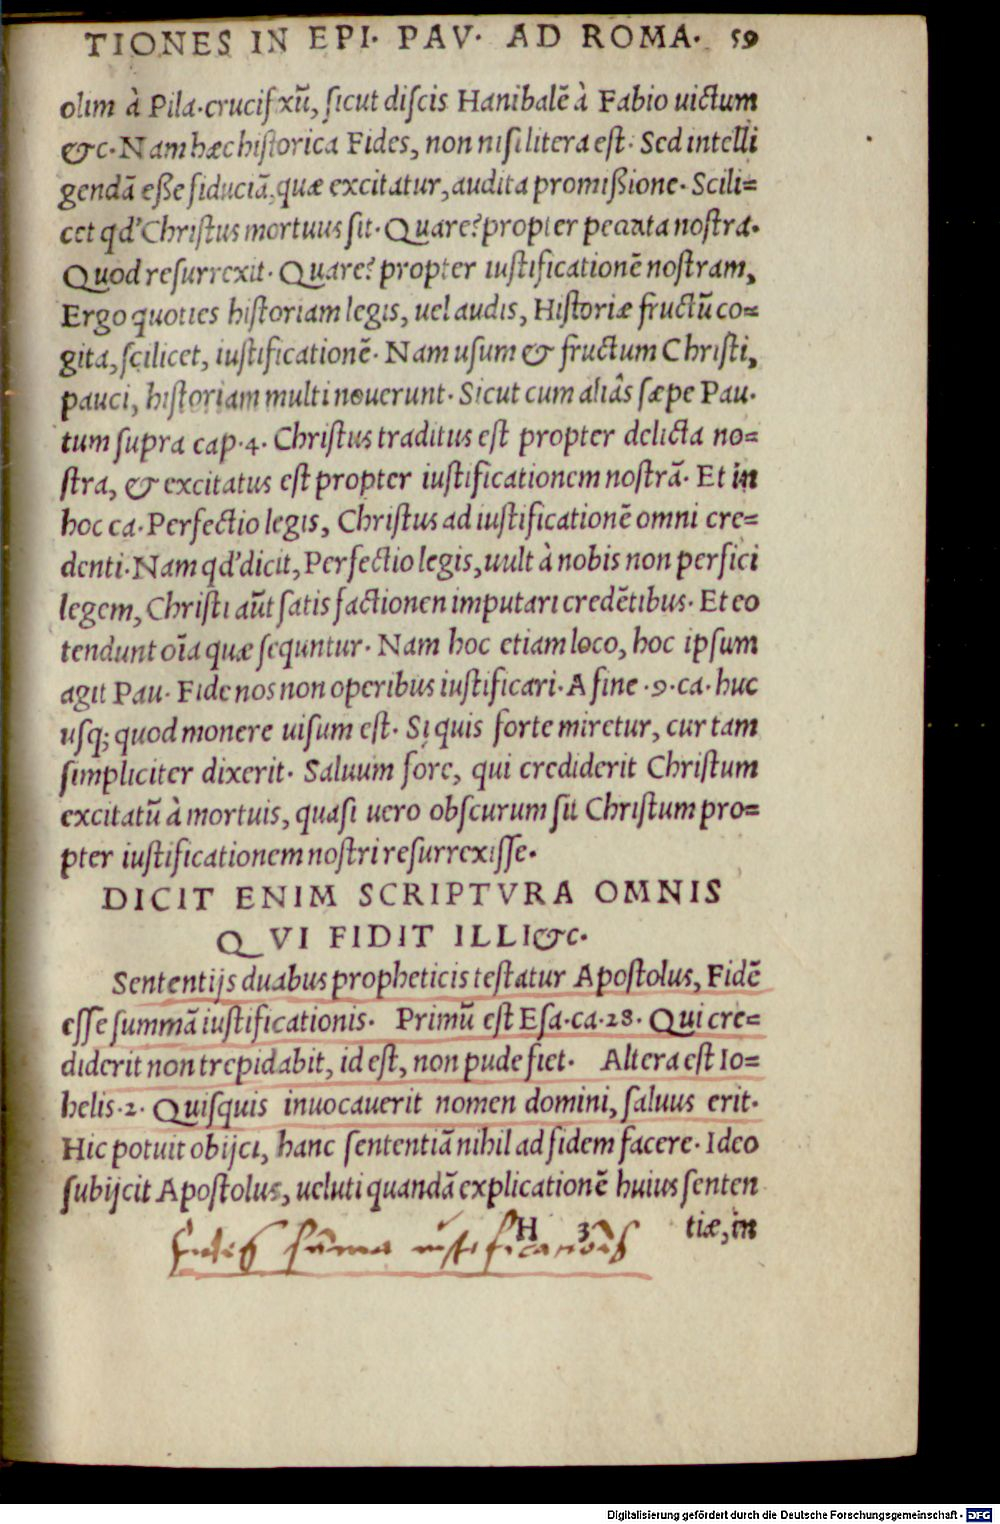 TIONES IN EPI. PAV. AD ROMA. 59
olim à Pila. crucifxũ, sicut discis Hanibalẽ à Fabio uictum
&c. Nam hæc historica Fides, non nisi litera est. Sed intelli
gendã eße fiduciã, quæ excitatur, audita promißione. Scili=
cet qđ Christus mortuus sit. Quare? propter peccata nostra.
Quod resurrexit. Quare? propter iustificationẽ nostram,
Ergo quoties historiam legis, uel audis, Historiæ fructũ co=
gita, scilicet, iustificationẽ. Nam usum & fructum Christi,
pauci, historiam multi nouerunt. Sicut cum aliâs sæpe Pau.
tum supra cap. 4. Christus traditus est propter delicta no=
stra, & excitatus est propter iustificationem nostrã. Et in
hoc ca. Perfectio legis, Christus ad iustificationẽ omni cre=
denti. Nam qđ dicit, Perfectio legis, uult à nobis non perfici
legem, Christi aũt satisfactionen imputari credẽtibus. Et eo
tendunt oĩa quæ sequntur. Nam hoc etiam loco, hoc ipsum
agit Pau. Fide nos non operibus iustificari. A fine .9. ca. huc
usq; quod monere uisum est. Si quis forte miretur, cur tam
simpliciter dixerit. Saluum fore, qui crediderit Christum
excitatũ à mortuis, quasi uero obscurum sit Christum pro=
pter iustificationem nostri resurrexisse.
DICIT ENIM SCRIPTVRA OMNIS
QVI FIDIT ILLI &c.
Sententijs duabus propheticis testatur Apostolus, Fidẽ
esse summã iustificationis. Primũ est Esa. ca. 28. Qui cre=
diderit non trepidabit, id est, non pudefiet. Altera est Io=
helis. 2. Quisquis inuocauerit nomen domini, saluus erit.
Hic potuit obijci, hanc sententiã nihil ad fidem facere. Ideo
subijcit Apostolus, ueluti quandã explicationẽ huius senten
H 3 tiæ, in
fides sũma iustificationis
Digitalisierung gefördert durch die Deutsche Forschungsgemeinschaft - DFG